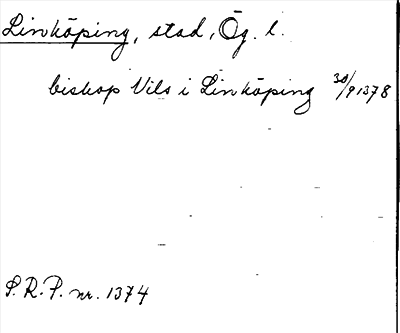 Linköping, stad, Ög. l.
biskop Nils i Linköping 30/9 1378
S.R.P. nr. 1374